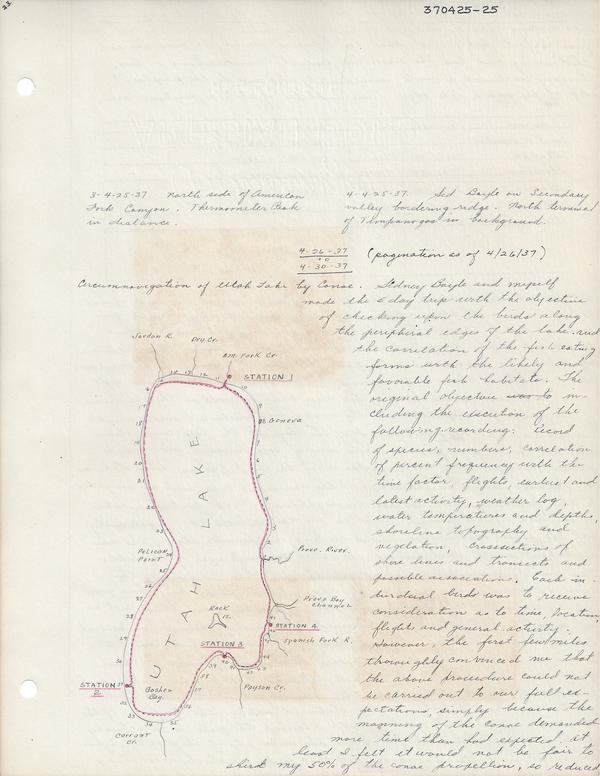 22
370425-25
3-4-25-37 North side of American
Fork Canyon. Thermometer Peak
in distance.
4-4-25-37. Sid Boyle on Secondary
valley bordering ridge. North terminal
of Timpanogos in background.
4-26-37
to
4-30-37
(pagination as of 4/26/37)
Circumnavigation of Utah Lake by Canoe. Sidney Boyle and myself
made the 5 day trip with the objective
of checking upon the birds along
the peripheral edges of the lake and
the correlation of the fish eating
forms with the likely and
favorable fish habitats. The
original objective was to in-
cluding the execution of the
following recording: Record
of species, numbers, correlation
of percent frequency with the
time factor, flights, earliest and
latest activity, weather log,
water temperatures and depths,
shoreline topography and
vegetation, crossections of
shore lines and transects and
possible associations. Each in-
dividual bird was to receive
consideration as to time, location,
flights and general activity.
However, the first few miles
throughly convinced me that
the above procedure could not
be carried out to our full ex-
pectations, simply because the
manning of the canoe demanded
more time than had expected, at
least I felt it would not be fair to
shirk my 50% of the canoe propellion, so reduced
Jordan R.
Dry Cr.
Am. Fork Cr.
STATION 1
Geneva
UTAH LAKE
Provo. River.
PELICAN
POINT
Provo Bay
Channel
ROCK
IS.
STATION 4
Spanish Fork R.
STATION 3
STATION
2
Goshen
Bay.
Payson Cr.
Currant
Cr.